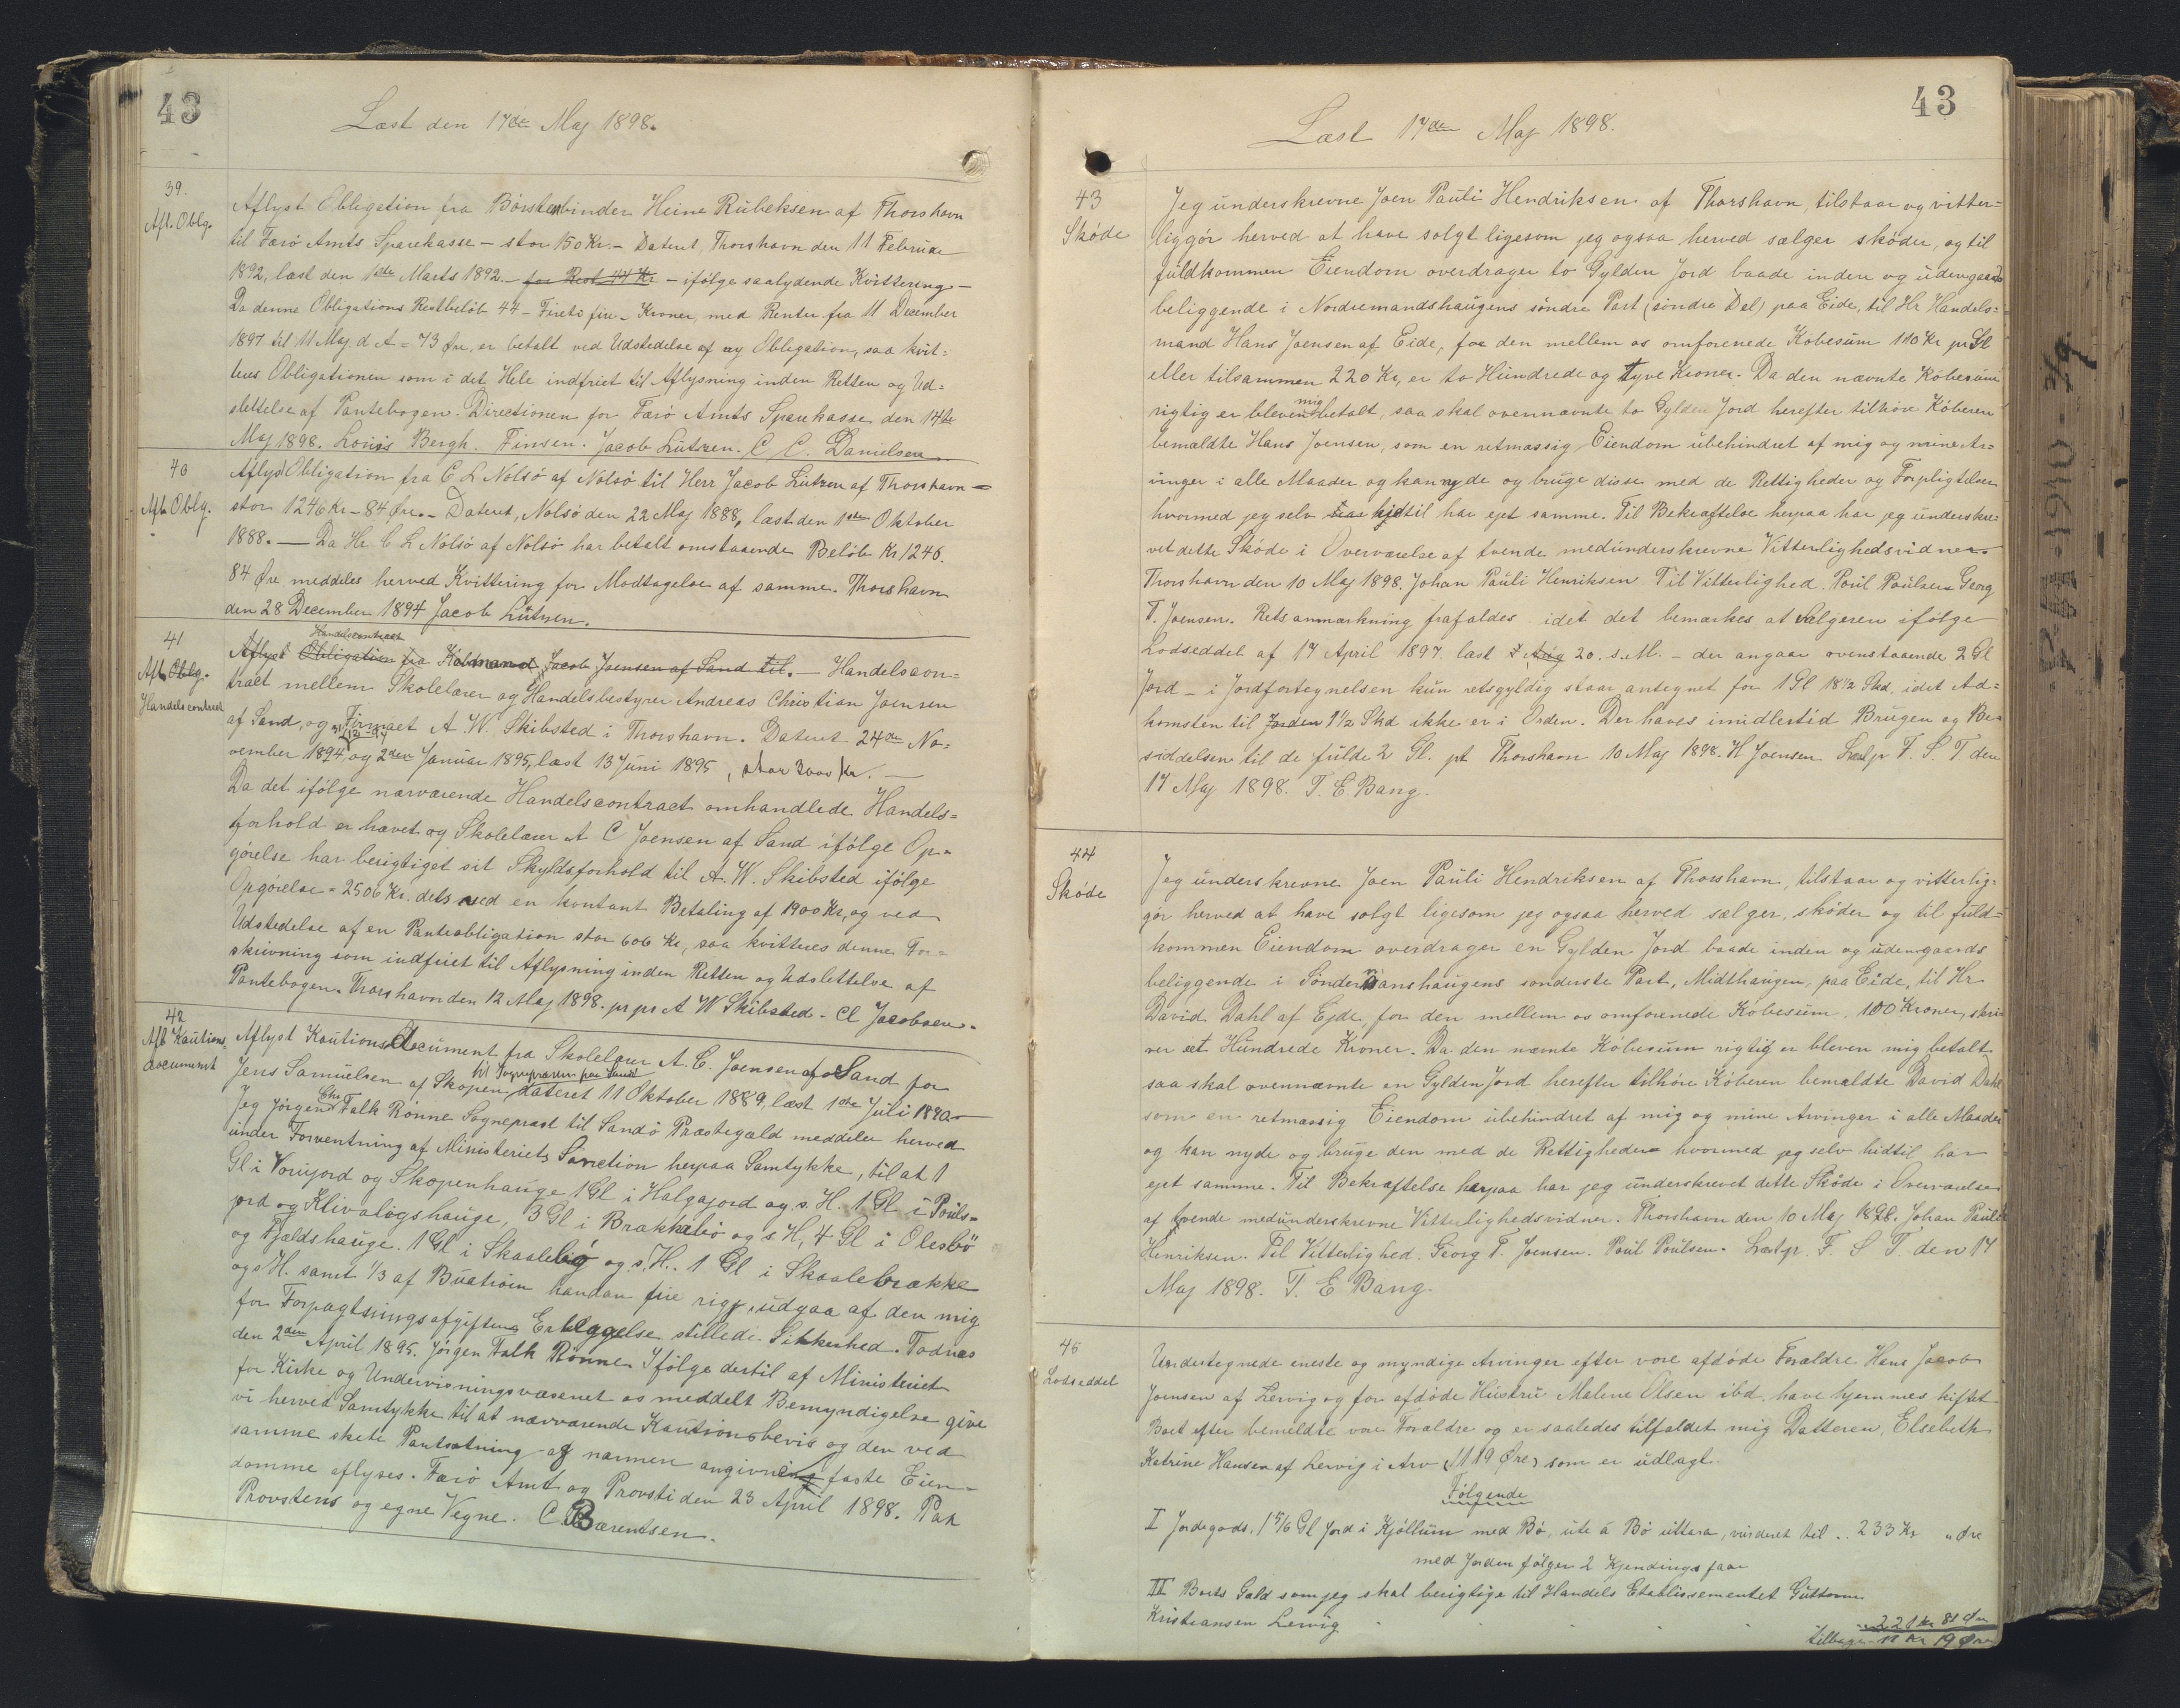 43
Læst den 17de Maj 1898.
39.
Afl. Oblg.
Aflyst Obligation fra Börstenbinder Heine Rubeksen af Thorshavn
til Færö Amts Sparekasse - stor 150 Kr. - Dateret, Thorshavn den 11 Februar
1892, læst den 1ste Marts 1892 - for Rest 44 Kr - ifölge saalydende Kvittering -
Da denne Obligations Restbelöb 44 - Fireti fire - Kroner, med Renter fra 11 December
1897 til 11 Maj d. A = 73 Öre, er betalt ved Udstedelse af ny Obligation, saa kvit=
teres Obligationen som i det Hele indfriet til Aflysning inden Retten og Ud=
slettelse af Pantebogen. Directionen for Færö Amts Sparekasse den 14de
Maj 1898. Louis Bergh. Finsen. Jacob Lützen. C C. Danielsen
40
Afl. Oblg.
Aflyst Obligation fra C L Nolsö af Nolsö til Herr Jacob Lützen af Thorshavn =
stor 1246 Kr - 84 Öre. - Dateret, Nolsö den 22 Maj 1888, læst den 1ste Oktober
1888. - Da Hr. C L Nolsö af Nolsö har betalt omstaaende Belöb Kr 1246.
84 Öre meddeles herved Kvittering for Modtagelse af samme. Thorshavn
den 28 December 1894 Jacob Lützen.
41
Afl. Oblg.
Handelscontract
Handelscontract
Aflyst Obligation fra Köbmand Jacob Joensen af Sand til. - Handelscon=
tract mellem Skolelærer og Handelsbestyrer Andreas Christian Joensen
af Sand, og Firmaet A. W. Skibsted i Thorshavn. Dateret 24de No=
vember 1894, og 2den Januar 1895, læst 13 Juni 1895, stor 3000 Kr. -
Da det ifölge nærværende Handelscontract omhandlede Handels=
forhold er hævet og Skolelærer A C Joensen af Sand ifölge Op=
görelse har berigtiget sit Skyldsforhold til A. W. Skibsted ifölge
Opgörelse = 2506 Kr. dels med en kontant Betaling af 1900 Kr, og ved
Udstedelse af en Panteobligation stor 606 Kr, saa kvitteres denne For=
skrivning som indfriet til Aflysning inden Retten og Udslettelse af
Pantebogen. Thorshavn den 12 Maj 1898. pr pr A W Skibsted - Cl Jacobsen.
42
Afl. Kautions
document
Aflyst Kautionsdocument fra Skolelærer A. C. Joensen af Sand for
til Sognepræsten paa Sandö
Jens Samuelsen af Skopen dateret 11 Oktober 1889, læst 1ste Juli 1890 -
Jeg Jörgen Chr Falk Rönne Sognepræst til Sandö Præstegæld meddeler herved
under Forventning af Ministeriets Sanction herpaa Samtykke, til at 1
Gl i Vorujord og Skopenhauge 1 Gl i Halgajord og s. H. 1 Gl i Pouls=
jord og Klivalögshauge, 3 Gl i Brækkebö og s H, 4 Gl i Olesbö
og Fjeldshauge. 1 Gl i Skaalebö og s. H. 1 Gl i Skaalebrække
og s H. samt 1/3 af Buatröin handan fire rigg, udgaa af den mig
for Forpagtningsafgiftens Erlæggelse stillede Sikkerhed. Todnæs
den 2den April 1895. Jörgen Falk Rönne. Ifölge dertil af Ministeriet
for Kirke og Undervisningsvæsenet os meddelt Bemyndigelse give
vi herved Samtykke til at nærværende Kautionsbevis og den ved
samme skete Pantsætning af nærmere angivne faste Eien=
domme aflyses. Færö Amt og Provsti den 23 April 1898. Paa
Provstens og egne Vegne. C. Bærentsen.
43
Læst 17de Maj 1898.
43
Sköde
Jeg underskrevne Joen Pauli Hendriksen af Thorshavn, tilstaar og vitter=
liggör herved at have solgt ligesom jeg ogsaa herved sælger sköder, og til
fuldkommen Eiendom overdrager to Gylden Jord baade inden og udengaards
beliggende i Nordremandshaugens söndre Part (söndre Del) paa Eide, til Hr Handels=
mand Hans Joensen af Eide, for den mellem os omforenede Köbesum 110 Kr pr Gl
eller tilsammen 220 Kr, er to Hundrede og tyve Kroner. Da den nævnte Köbesum
rigtig er bleven mig betalt, saa skal ovennævnte to Gylden Jord herefter tilhöre Köberen
bemældte Hans Joensen, som en retmæssig Eiendom ubehindret af mig og mine Ar=
vinger i alle Maader og kan nyde og bruge disse med de Rettigheder og Forpligtelser
hvormed jeg selv har hidtil har ejet samme. Til Bekræftelse herpaa har jeg underskre=
vet dette Sköde i Overværelse af tvende medunderskrevne Vitterlighedsvidner.
Thorshavn den 10 Maj 1898. Johan Pauli Henriksen. Til Vitterlighed. Poul Poulsen Georg
T. Joensen. Retsanmærkning frafaldes idet det bemærkes at Sælgeren ifölge
Lodseddel af 17 April 1897 læst 7 Aug 20. s. M. - der angaar ovenstaaende 2 Gl
Jord - i Jordfortegnelsen kun retsgyldig staar antegnet for 1 Gl 18½ Skd, idet Ad=
komsten til Jorden 1½ Skd ikke er i Orden. Der haves imidlertid Brugen og Be=
siddelsen til de fulde 2 Gl. pt Thorshavn 10 Maj 1898. H Joensen Læst pr F. S. T den
17 Maj 1898. T. E Bang.
44
Sköde
Jeg underskrevne Joen Pauli Hendriksen af Thorshavn, tilstaar og vitterlig=
gör herved at have solgt ligesom jeg ogsaa herved sælger, sköder og til fuld=
kommen Eiendom overdrager en Gylden Jord baade inden og udengaards
beliggende i Söndermanshaugens sonderste Part, Midthaugen, paa Eide, til Hr
David Dahl af Ejde, for den mellem os omforenede Köbesum, 100 Kroner, skri
ver et Hundrede Kroner. Da den nævnte Köbesum rigtig er bleven mig betalt
saa skal ovennævnte en Gylden Jord herefter tilhöre Köberen bemældte David Dahl
som en retmæssig Eiendom ubehindret af mig og mine Arvinger i alle Maader
og kan nyde og bruge den med de Rettigheder hvormed jeg selv hidtil har
ejet samme. Til Bekræftelse herpaa har jeg underskrevet dette Sköde i Overværelse
af tvende medunderskrevne Vitterlighedsvidner. Thorshavn den 10 Maj 1898. Johan Pauli
Henriksen. Til Vitterlighed. Georg T. Joensen. Poul Poulsen. Læst pr. F. S T. den 17
Maj 1898. T. E Bang.
45
Lodseddel
Undertegnede eneste og myndige Arvinger efter vore afdöde Forældre Hans Jacob
Joensen af Lervig og for afdöde Hustru Malene Olsen ibd. have hjemmeskiftet
Boet efter bemeldte vore Forældre og er saaledes tilfaldet mig Datteren, Elsebeth
Katrine Hansen af Lervig i Arv (1119 Öre) som er udlagt.
Fölgende
I Jordegods, 1 5/6 Gl Jord i Kjöllum med Bö, ute á Bö uttara, vurderet til .. 233 Kr " Öre
med Jorden fölger 2 Kjendings faar
II Boets Gæld som jeg skal berigtige til Handels Etablissementet Guttorm
Kristiansen Lervig
221 Kr 81 Öre
tilbage 11 Kr 19 Öre